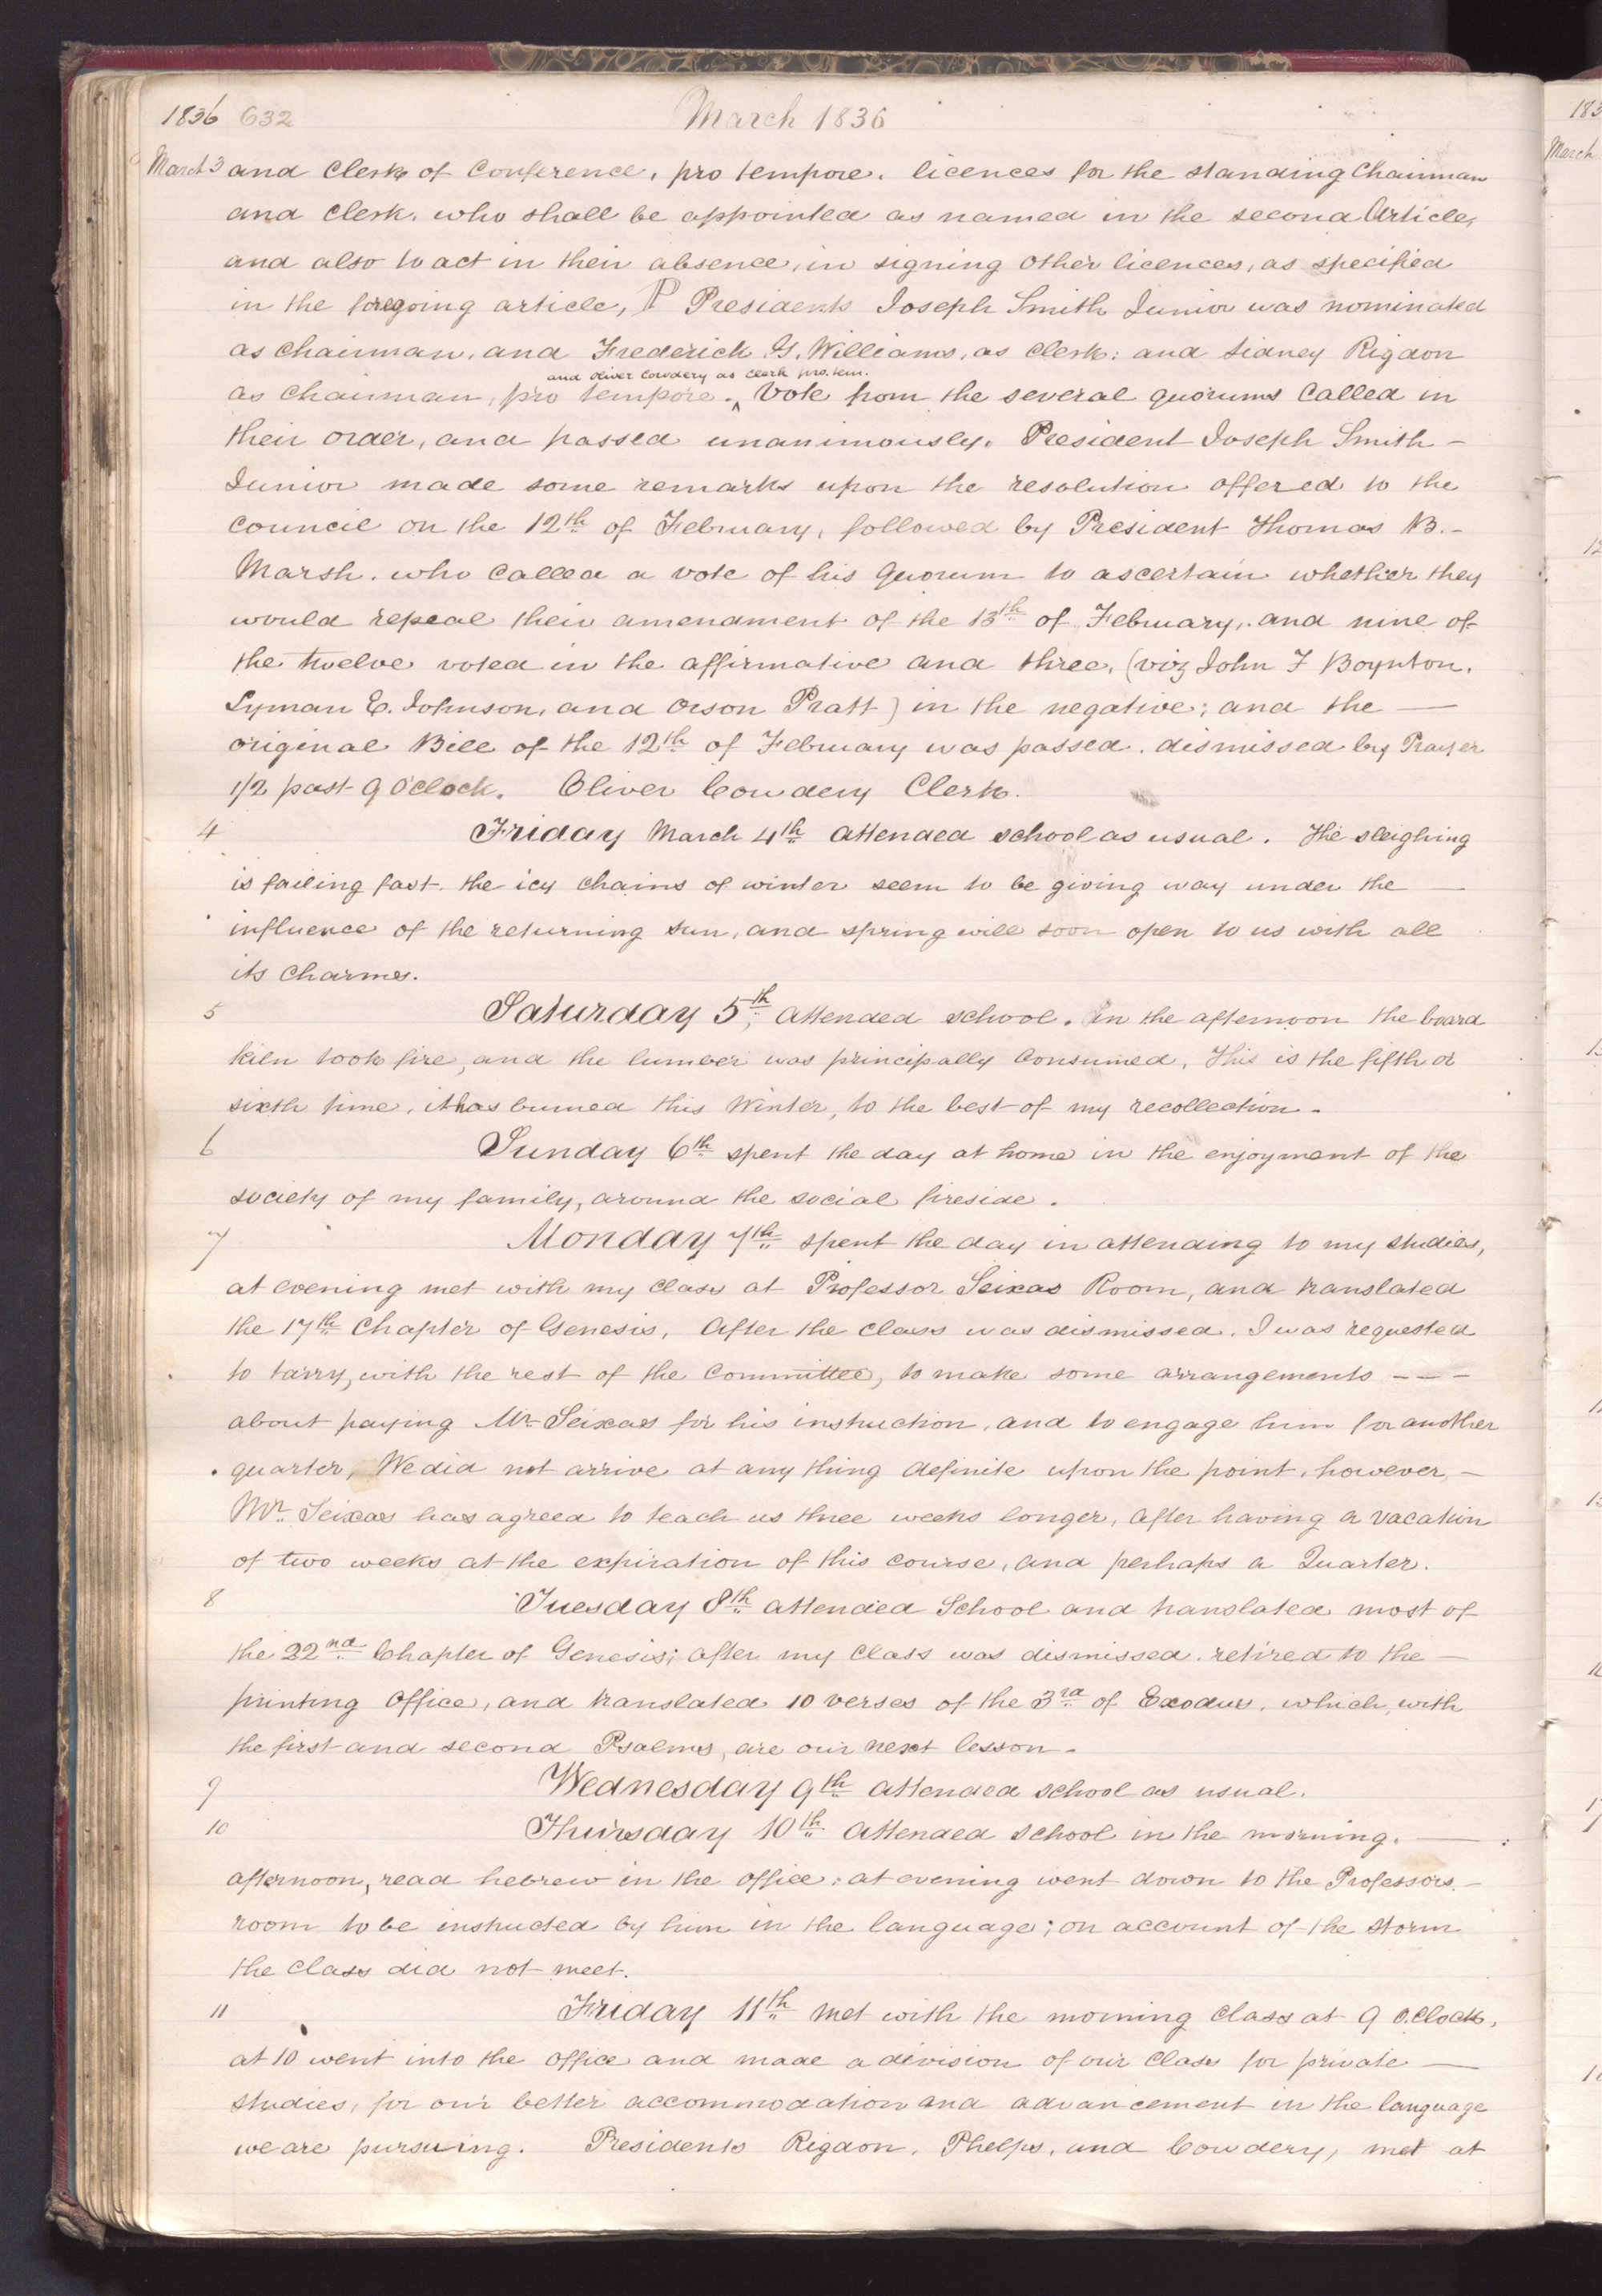 1836 632 March 1836
March 3 and Clerk of Conference, pro tempore. licences for the standing Chairman
and Clerk. who shall be appointed as named in the second Article,
and also to act in their absence, in signing other licences, as specified
in the foregoing article, P Presidents Joseph Smith Junior was nominated
as Chairman, and Frederick G. Williams, as Clerk: and Sidney Rigdon
and Oliver Cowdery as Clerk pro. tem.
as Chairman, pro tempore. ^ Vote from the several quorums Called in
their order, and passed unanimously. President Joseph Smith -
Junior made some remarks upon the resolution offered to the
Council on the 12th of February, followed by President Thomas B. -
Marsh. who called a vote of his Quorum to ascertain whether they
would repeal their amendment of the 13th of February, and nine of
the twelve voted in the affirmative and three, (viz John F Boynton.
Lyman E. Johnson, and Orson Pratt) in the negative; and the —
original Bill of the 12th of February was passed. dismissed by Prayer
1/2 past 9 O'Clock. Oliver Cowdery Clerk.
4 Friday March 4th attended school as usual. The sleighing
is failing fast. the icy chains of winter seem to be giving way under the —
influence of the returning sun, and spring will soon open to us with all
its charmes.
5 Saturday 5th, attended school. In the afternoon the board
kiln took fire, and the lumber was principally Consumed, This is the fifth or
sixth time, it has burned this Winter, to the best of my recollection -
6 Sunday 6th spent the day at home in the enjoyment of the
society of my family, around the social fireside.
7 Monday 7th spent the day in attending to my studies,
at evening met with my class at Professor Seixas Room, and translated
the 17th Chapter of Genesis, After the class was dismissed. I was requested
to tarry, with the rest of the Committee, to make some arrangements - - -
about paying Mr. Seixas for his instruction, and to engage him for another
quarter, We did not arrive at any thing definite upon the point, however, -
Mr. Seixas has agreed to teach us three weeks longer, after having a vacation
of two weeks at the expiration of this course, and perhaps a Quarter.
8 Tuesday 8th attended School and translated most of
the 22nd Chapter of Genesis; after my Class was dismissed. retired to the —
printing Office, and translated 10 verses of the 3rd of Exodus, which, with
the first and second Psalms, are our next lesson -
9 Wednesday 9th attended school as usual.
10 Thursday 10th attended school in the morning. —
afternoon, read hebrew in the office; at evening went down to the Professors. -
room to be instructed by him in the language; on account of the storm
the Class did not meet.
11 Friday 11th met with the morning class at 9 O.Clock,
at 10 went into the office and made a division of our Class for private —
studies, for our better accommodation and advancement in the language
we are pursuing. Presidents Rigdon, Phelps, and Cowdery, met at